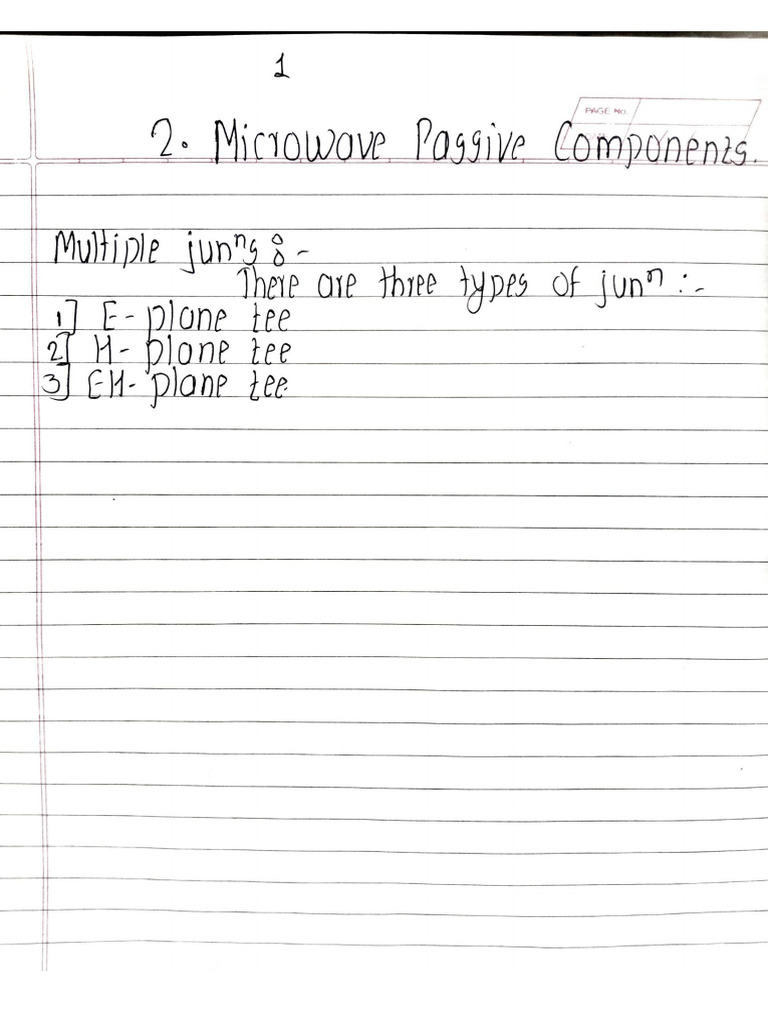 1
PAGE No.
2. Microwave Passive Components.
Multiple junⁿs :-
There are three types of junⁿ :-
1] E- plane tee
2] H- plane tee
3] EH- plane tee